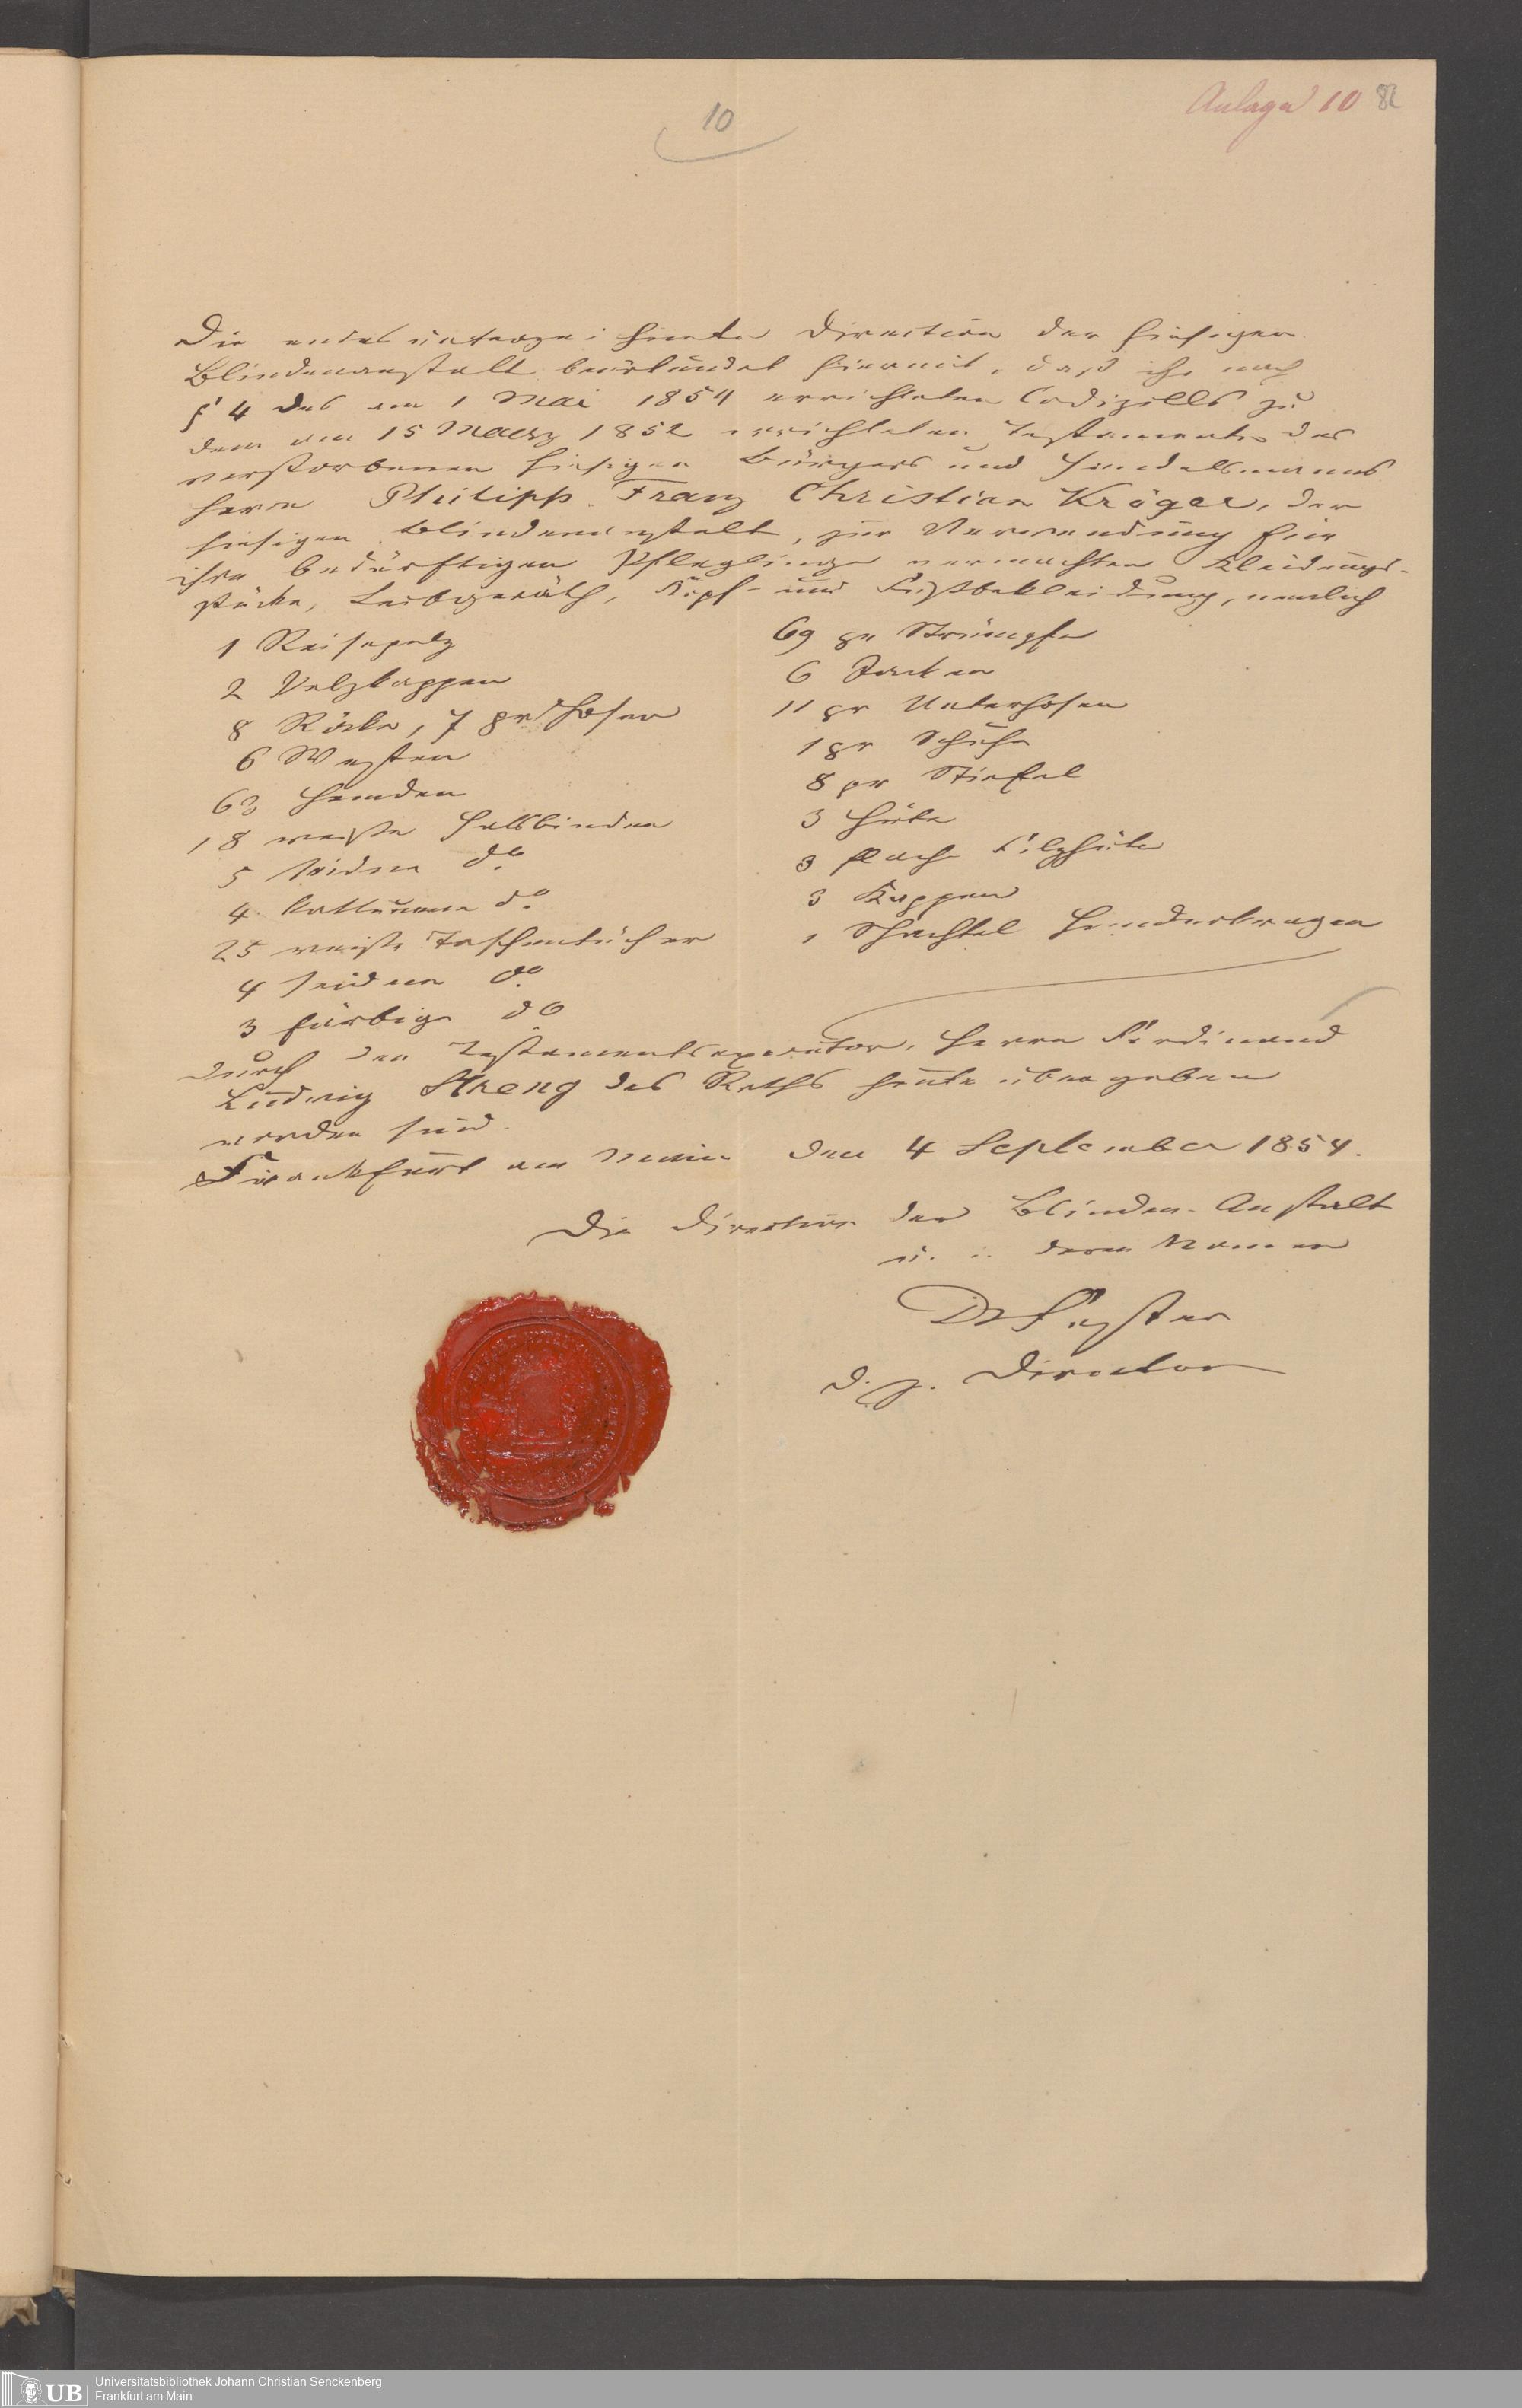 10
Anlage 10 82
Die endesunterzeichnete Direction der hiesigen
Blindenanstalt beurkundet hiermit, daß ihr nach
§ 4 des am 1 Mai 1854 errichteten Codizills zu
dem am 15 Maerz 1852 errichteten Testamente des
verstorbenen hiesigen Bürgers und Handelsmanns
Herrn Philipp Franz Christian Kröger, der
hiesigen Blindenanstalt, zur Verwendung für
ihre bedürftigen Pfleglinge vermachten Kleidungs-
stücke, Leibgeräth, Kopf- und Fußbekleidung, nemlich
1 Reisepelz
2 Pelzkappen
8 Röcke, 7 pr Hosen
6 Westen
63 Hemden
18 weiße Halsbinden
5 seidne do
4 kattunene do
25 weiße Taschentücher
4 seidene do
3 farbige do
69 pr Strümpfe
6 Jacken
11 pr Unterhosen
1 pr Schuhe
8 pr Stiefel
3 Hüte
3 flache Filzhüte
3 Kappen
1 Schachtel Hemderkragen
durch den Testamentsexecutor, Herrn Ferdinand
Ludwig Streng des Raths heute übergeben
worden sind.
Frankfurt am Main den 4 September 1854.
Die Direction der Blinden-Anstalt
u. in deren Namen
Dr
d. z. Director
UB
Universitätsbibliothek Johann Christian Senckenberg
Frankfurt am Main